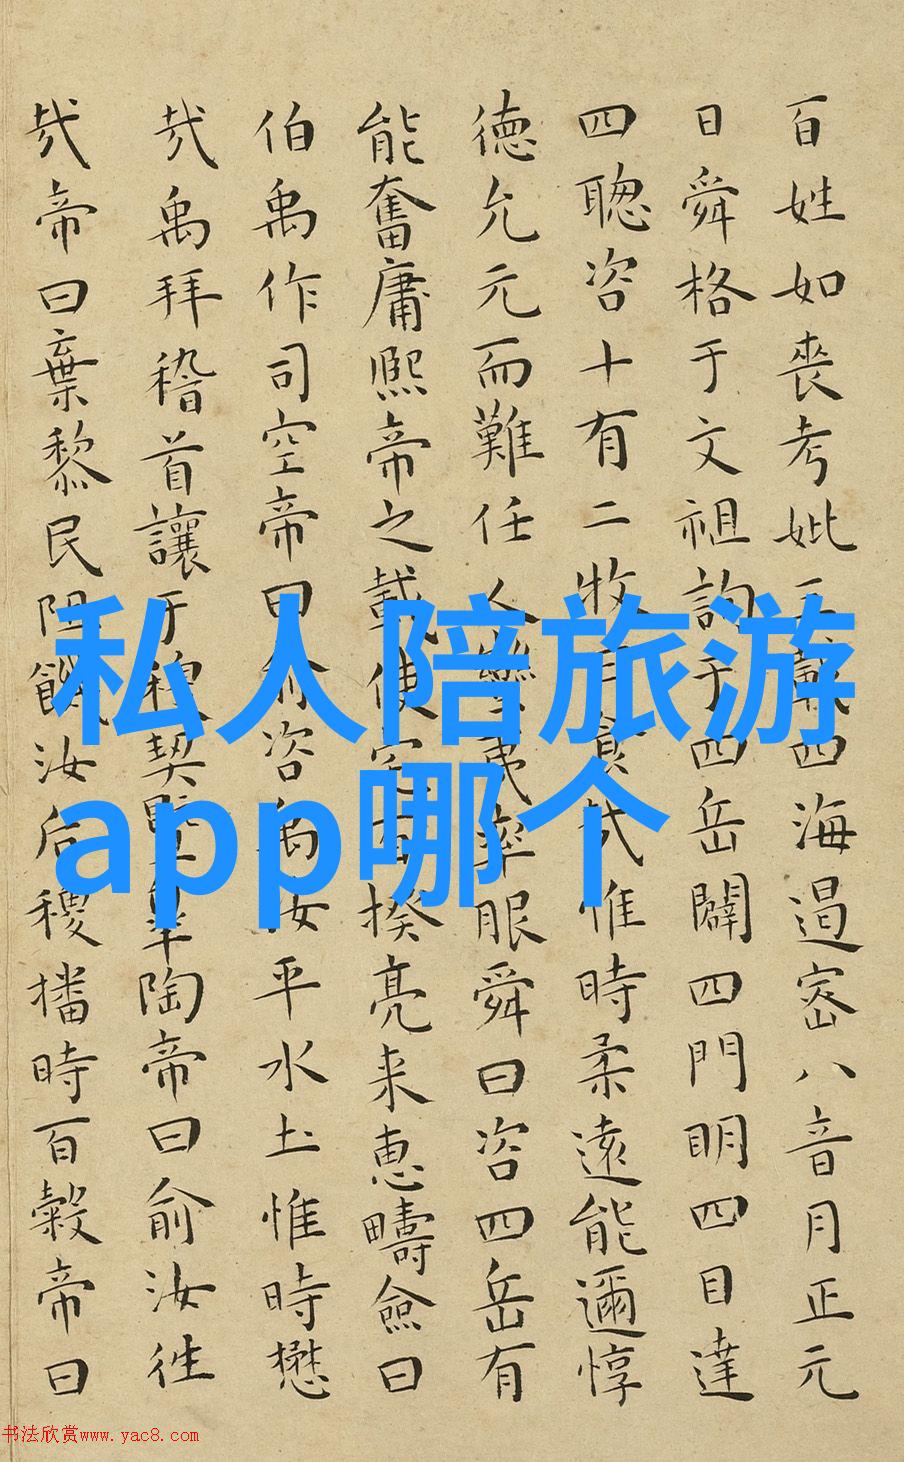 百姓如喪考妣三載四海遏密八音月正元
日舜格于文祖詢于四岳闢四門明四目達
四聰咨十有二牧曰食哉惟時柔遠能邇惇
德允元而難任人蠻夷率服舜曰咨四岳有
能奮庸熙帝之載使宅百揆亮采惠疇僉曰
伯禹作司空帝曰俞咨禹汝平水土惟時懋
哉禹拜稽首讓于稷契暨皋陶帝曰俞汝往
哉帝曰棄黎民阻飢汝后稷播時百穀帝曰
私人陪旅游
app哪个
书法欣赏www.yac8.com